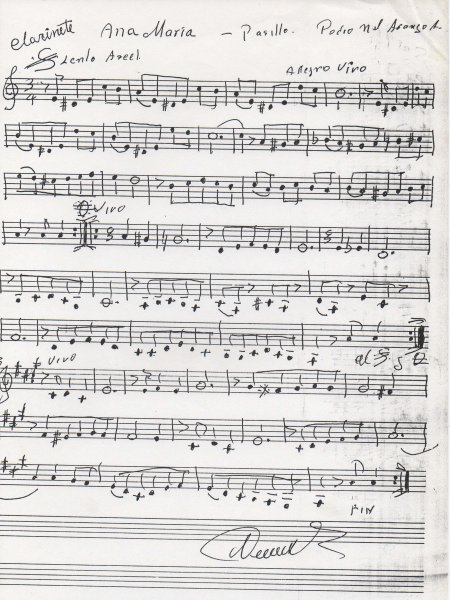 Clarinete Ana Maria - Pasillo. Pedro Nel Arango A.
Lento Accel. Allegro Vivo
VIVO
al
VIVO
FIN